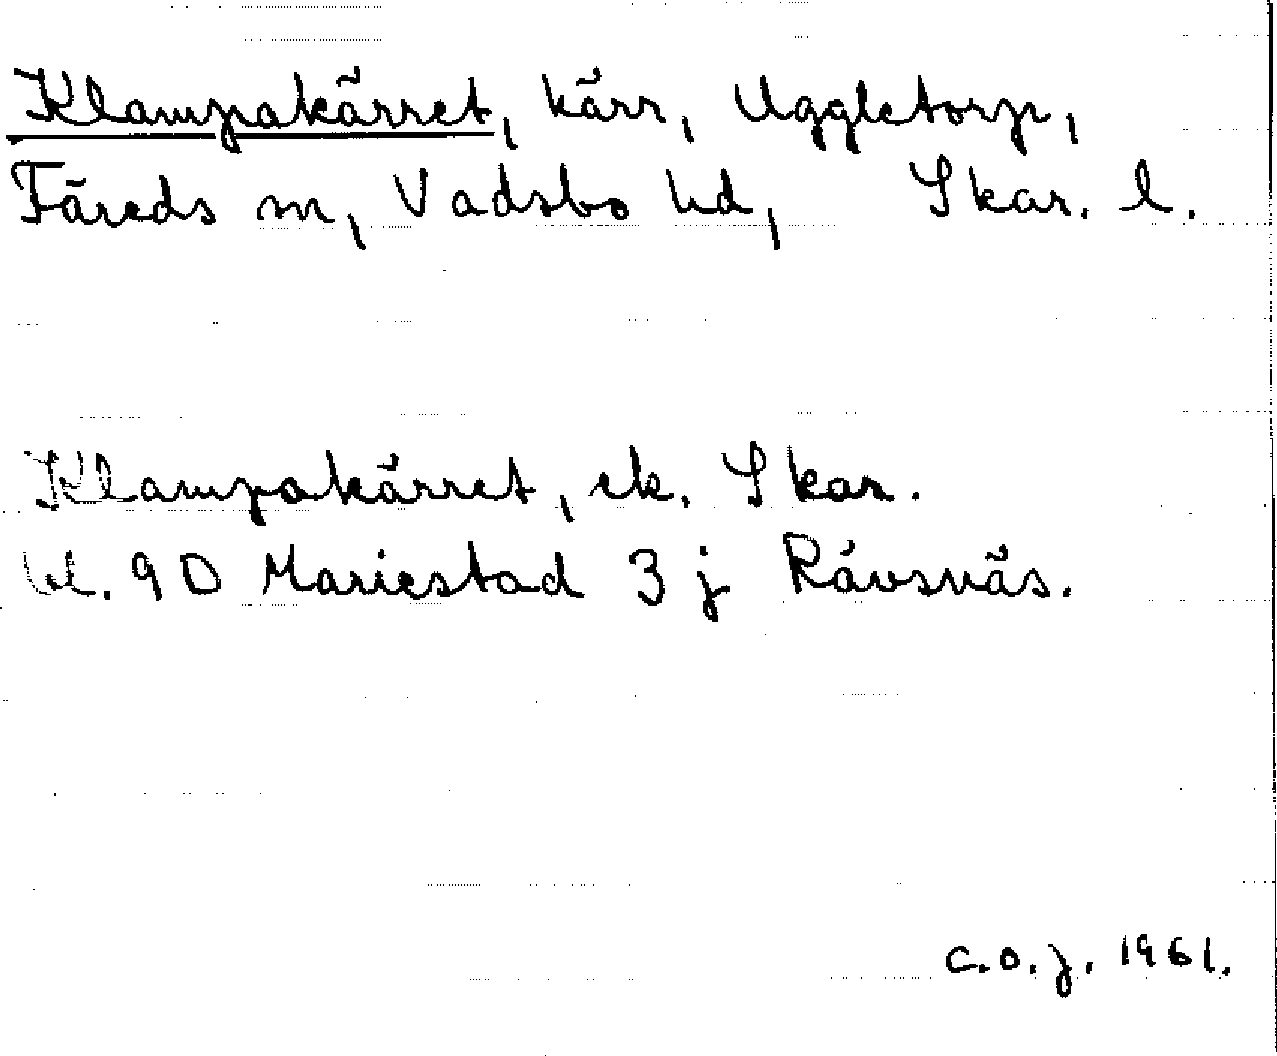 Klampakärret, kärr, Uggletorp,
Färeds sn, Vadsbo hd, Skar. l.
Klampakärret, ek. Skar.
bl. 9D Mariestad 3 j Rävsnäs.
C.O.J. 1961.